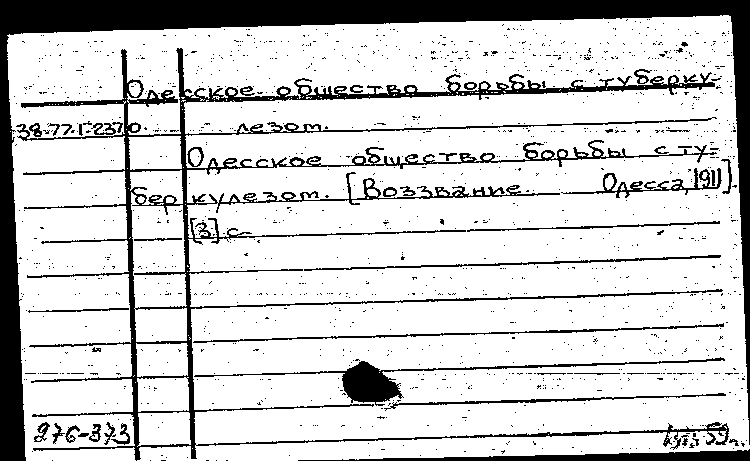 Одесское общество борьбы с туберку-
38-77.1.2370. лезом.
Одесское общество борьбы с ту-
беркулезом. [Воззвание. Одесса, 1911].
[3] с.
276-373
59 г.